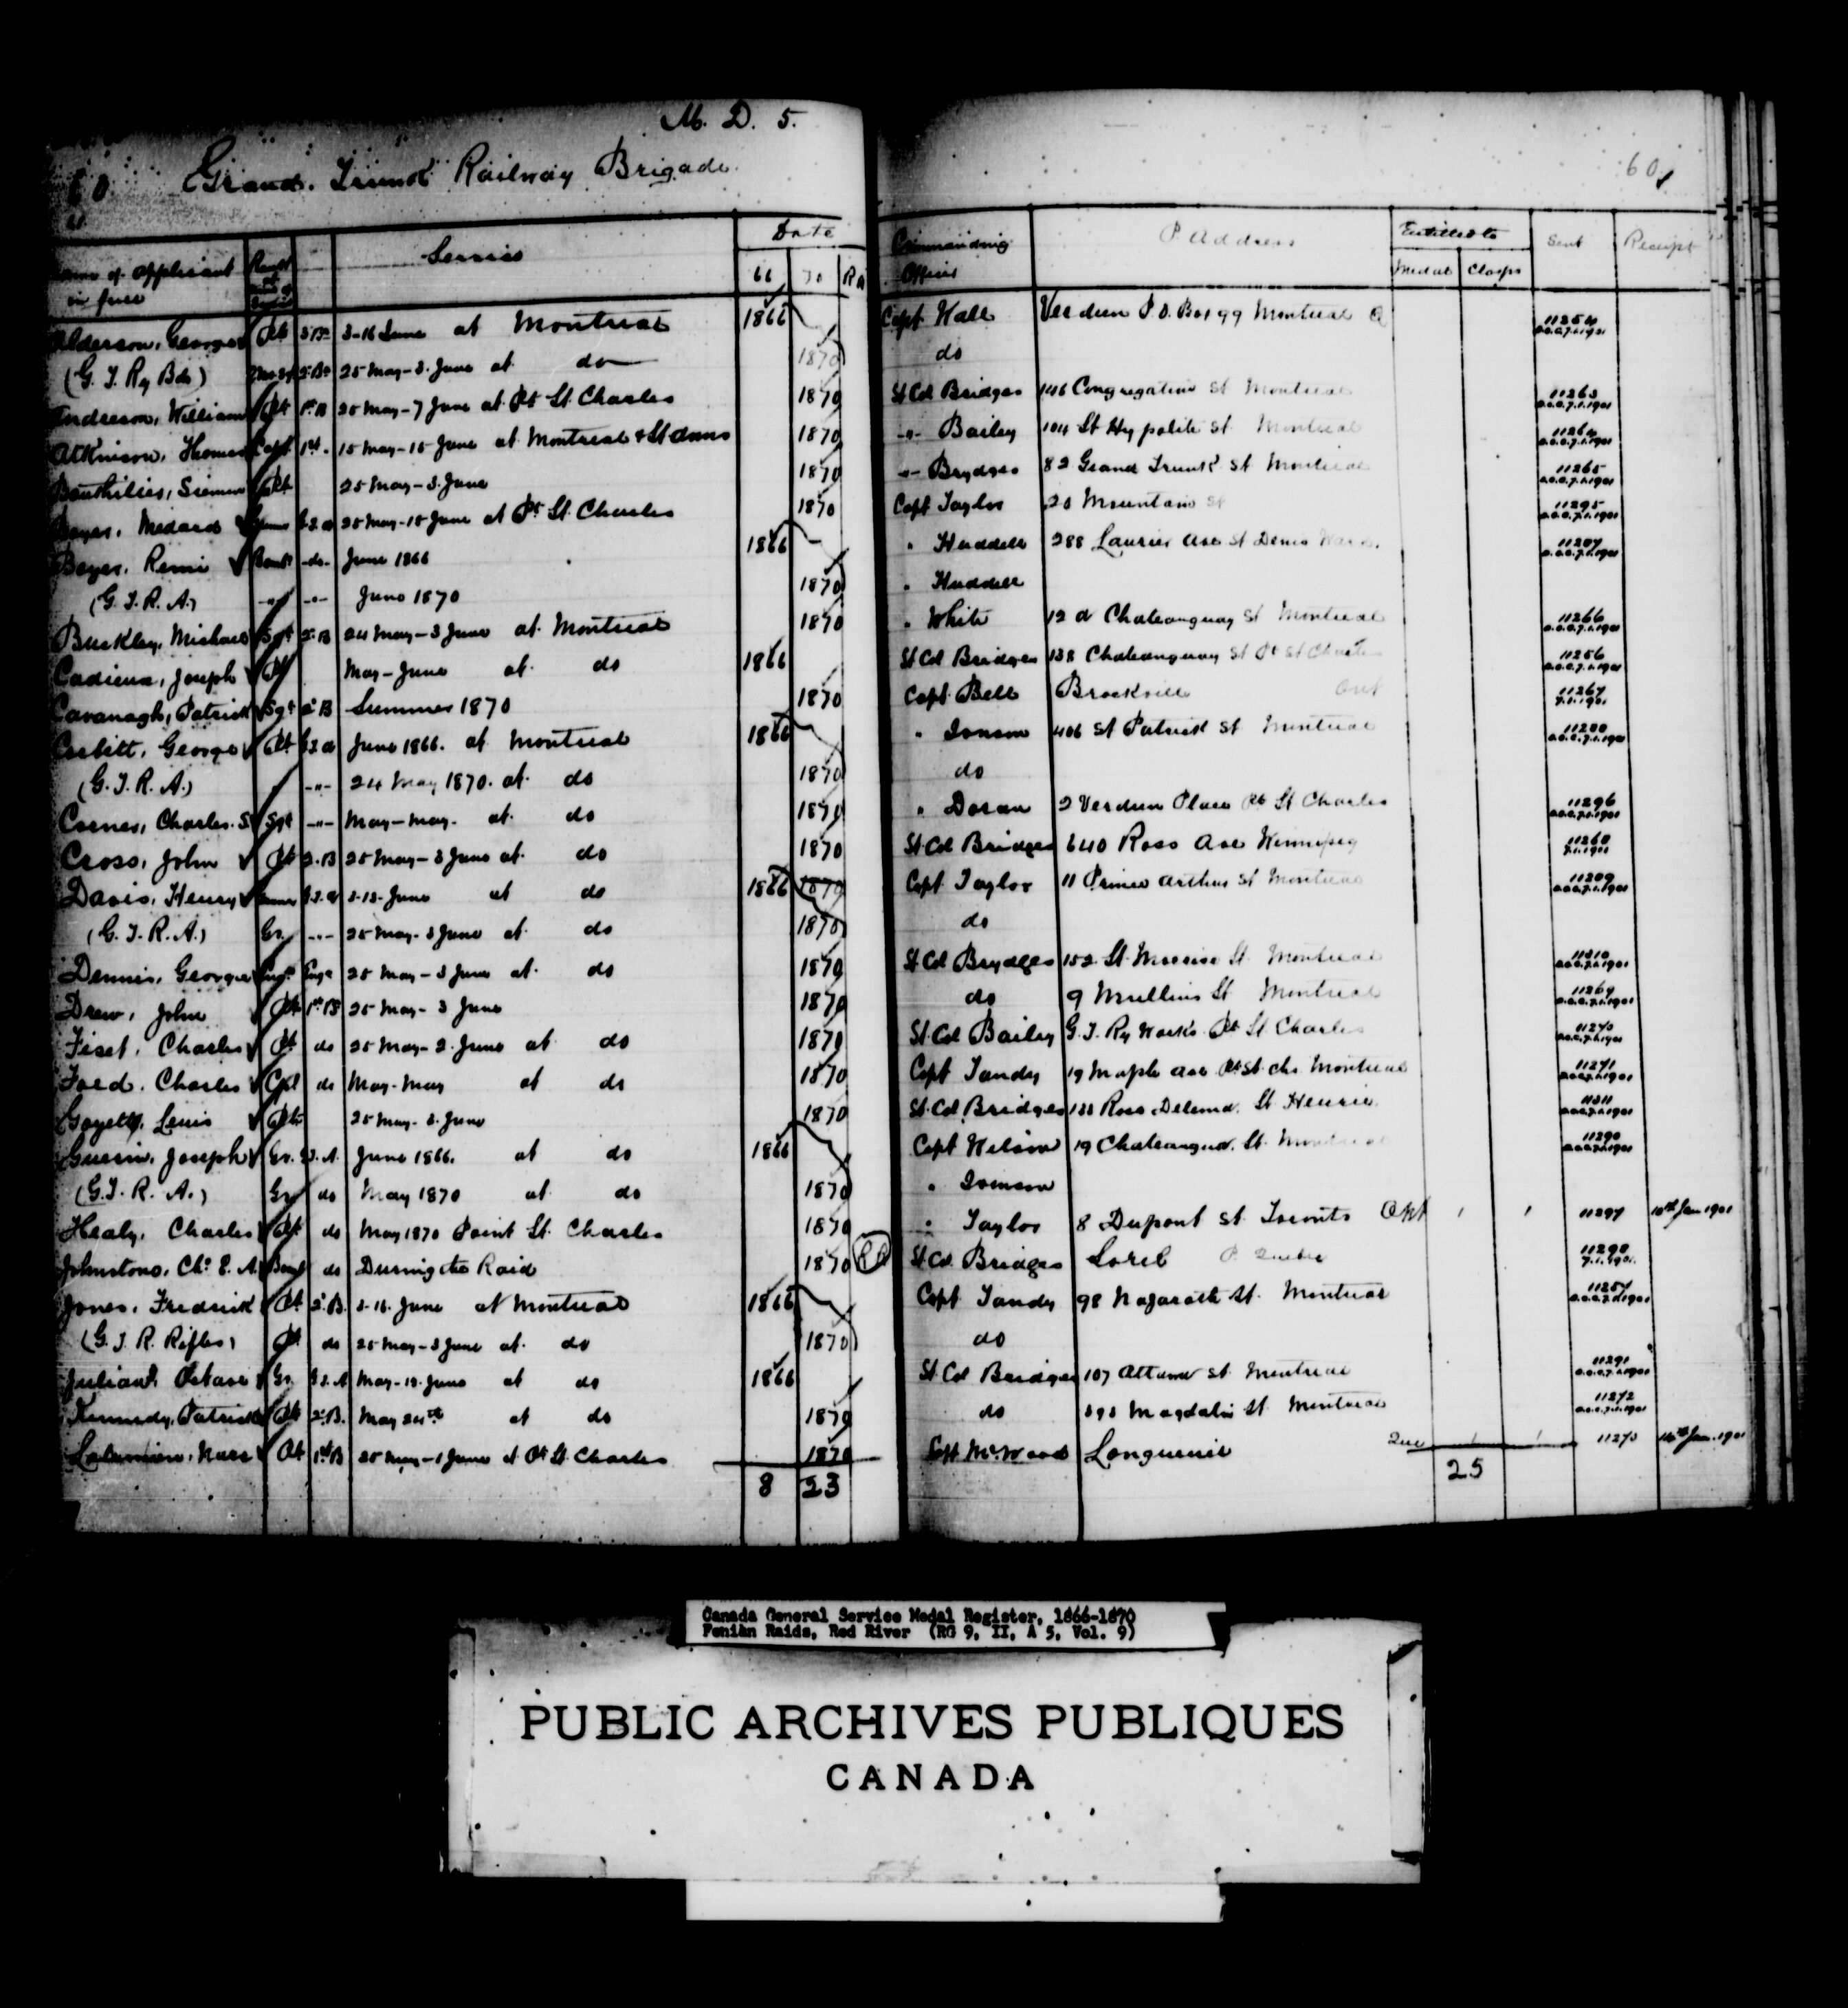 M. D. 5.
60 Grand. Trunk Railway Brigade
60
Name of applicant in full Rank Service Date 66 70 Commanding Officer P. Address Entitled to Medal Clasps Sent Receipt
Alderson, George Pt 3-16 June at Montreal 1866 Capt. Hall Verdun P.O. Box 99 Montreal Q 11254
(G. T. Ry Bde) 25 May-3. June at do 1870 do
Anderson, William Pt 1st B 25 May-7 June at Pt St. Charles 1870 Lt Col Bridges 146 Congregation St Montreal 11263
Atkinson, Thomas Capt 1st. 15 May-15 June at Montreal & St Johns 1870 -"- Bailey 104 St Hypolite St Montreal 11264
Bouthilier, Simeon Pt 25 May-3. June 1870 -"- Brydges 82 Grand Trunk St Montreal 11265
Boyer. Medard 25 May-15 June at Pt. St. Charles 1870 Capt Taylor 20 Mountain St 11295
Boyer. Remi -do- June 1866 1866 " Huddell 288 Laurier Ave St Denis Ward.
(G. T. R. A.) -"- -"- June 1870 1870 " Huddell
Buckley, Michael Sgt 2. B 24 May-3 June at Montreal 1870 " White 12 a Chateauguay St Montreal 11266
Cadieux, Joseph Pt May-June at do 1866 Lt Col Bridges 138 Chateauguay St Pt St Charles 11256
Cavanagh, Patrick Sgt 2. B Summer 1870 1870 Capt. Bell Brockville Ont 11267
Corbitt, George Pt June 1866. at Montreal 1866 " Ionson 406 St Patrick St Montreal
(G. T. R. A.) -"- 24 May 1870. at do 1870 do
Cornes, Charles. S. Sgt -"- May-May. at do 1870 " Doran 2 Verdun Place Pt St Charles 11296
Cross, John Pt 2. B 25 May-3 June at do 1870 Lt. Col Bridges 640 Ross Ave Winnipeg
Davis, Henry 3-13-June at do 1866 1870 Capt. Taylor 11 Prince Arthur St Montreal
(G. T. R. A.) Gr. -"- 25 May-3 June at do 1870 do
Dennis, George 25 May-3 June at do 1870 Lt Col Brydges 152 St. Maurice St. Montreal
Drew, John Pt 1st B 25 May-3 June 1870 do 9 Mullins St Montreal 11269
Fiset, Charles Pt do 25 May-2. June at do 1870 Lt. Col Bailey G. T. Ry Works. Pt St Charles 11270
Ford, Charles Cpl do May-May at do 1870 Capt Tandy 19 Maple Ave Pt St. Chs Montreal 11271
Goyette, Louis Pt 25 May-3. June 1870 Lt. Col Bridges
Guerin, Joseph Gr. June 1866. at do 1866 Capt Nelson 19 Chateauguay. St. Montreal 11290
(G. T. R. A.) Gr do May 1870 at do 1870 " Ionson
Healy, Charles Pt do May 1870 Point St. Charles 1870 " Taylor 8 Dupont St Toronto Ont 1 1 11297 10th Jan 1901
Johnstone, Chs E. A. do During the Raid 1870 RR Lt Col Bridges Sorel P. Quebec
Jones, Fredrick Pt 2. B. 3-16. June at Montreal 1866 Capt Tandy 98 Nazareth St. Montreal 11257
(G. T. R. Rifles) Pt do 25 May-3 June at. do 1870 do
Julian, Octave Gr. May-13. June at do 1866 Lt Col Bridges 107 Ottawa St. Montreal 11291
Kennedy, Patrick Pt 2. B. May 24th at do 1870 do Magdalen St. Montreal 11272
Pt 1st B 25 May-1 June at Pt St. Charles 1870 Capt. McWood Longueuil Que 1 1 14th Jan. 1901
8 23 25
Canada General Service Medal Register, 1866-1870
Fenian Raids, Red River (RG 9, II, A 5, Vol. 9)
PUBLIC ARCHIVES PUBLIQUES
CANADA